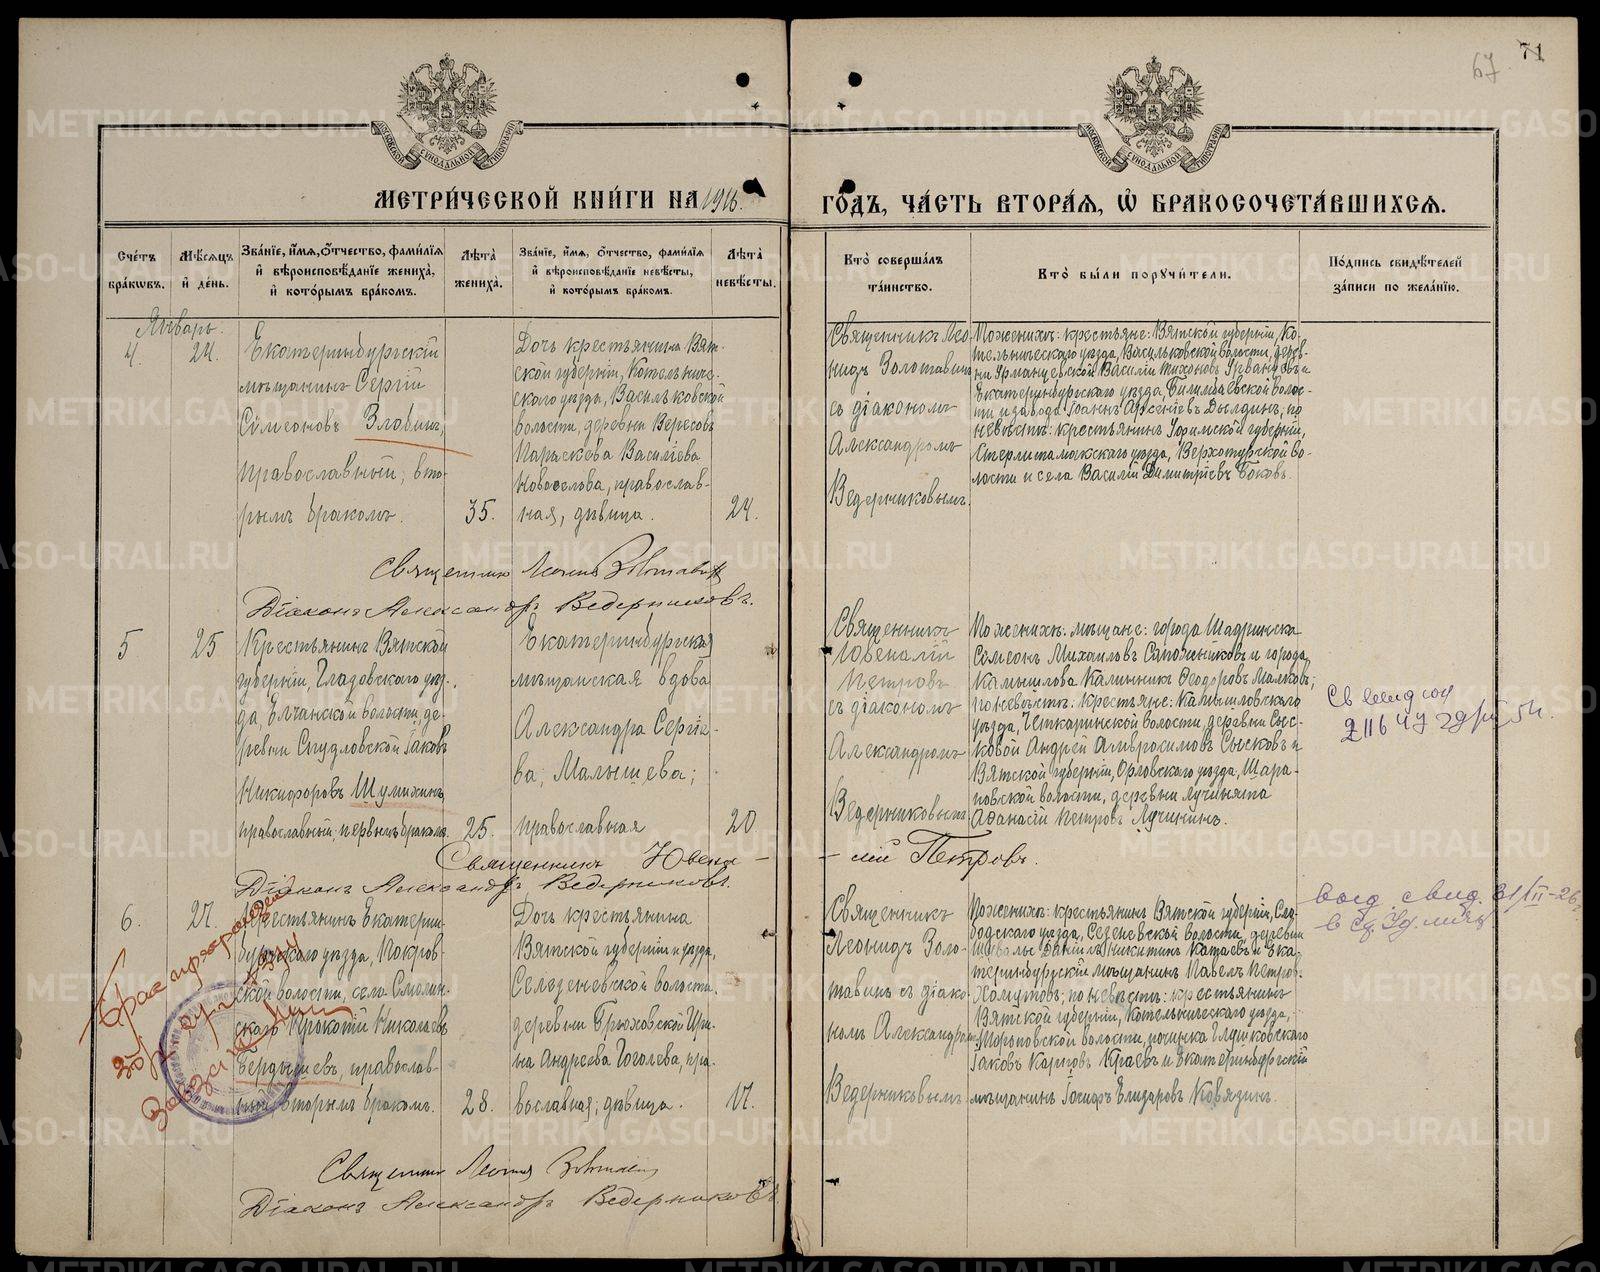 67 71
МОСКОВСКОЙ СѴНОДАЛЬНОЙ ТИПОГРАФІИ
МОСКОВСКОЙ СѴНОДАЛЬНОЙ ТИПОГРАФІИ
МЕТРИ́ЧЕСКОЙ КНИ́ГИ НА 1916.
ГО́ДЪ, ЧА́СТЬ ВТОРА́Я, Ѽ БРАКОСОЧЕТА́ВШИХСЯ.
Сче́тъ бра́ковъ.
Мѣ́сяцъ и҆ де́нь.
Зва́нїе, и҆́мя, ѻ҆́тчество, фами́лїя и҆ вѣроисповѣ́данїе жениха̀, и҆ кото́рымъ бра́комъ.
Лѣ́та жениха̀.
Зва́нїе, и҆́мя, ѻ҆́тчество, фами́лїя и҆ вѣроисповѣ́данїе невѣ́сты, и҆ кото́рымъ бра́комъ.
Лѣ́та невѣ́сты.
Кто̀ соверша́лъ та́инство.
Кто̀ бы́ли поручи́тели.
По́дпись свидѣ́телей за́писи по жела́нїю.
Январь.
4
24.
Екатеринбургскій
мѣщанинъ Сергій
Сѵмеоновъ Злобинъ,
православный, вто-
рымъ бракомъ.
35.
Дочь крестьянина Вят-
ской губерніи, Котельниче-
скаго уѣзда, Васильковской
волости, деревни Вересовъ
Параскева Василіева
Новоселова, православ-
ная, дѣвица.
24.
Священникъ Лео-
нидъ Золотавинъ
съ діакономъ
Александромъ
Ведерниковымъ.
По женихѣ: крестьяне: Вятской губерніи, Ко-
тельническаго уѣзда, Васильковской волости, дерев-
ни Урманцевской Василій Тихоновъ Урванцевъ и
Екатеринбургскаго уѣзда, Билимбаевской волос-
ти и завода Іоаннъ Арсеніевъ Дылдинъ, по
невѣстѣ: крестьянинъ Уфимской губерніи,
Стерлитамакскаго уѣзда, Верхоторской во-
лости и села Василій Димитріевъ Боковъ.
Священникъ Леонидъ Золотавинъ
Діаконъ Александръ Ведерниковъ.
5
25
Крестьянинъ Вятской
губерніи, Глазовскаго уѣз-
да, Елганской волости, де-
ревни Студловской Іаковъ
Никифоровъ Шумихинъ,
православный, первымъ бракомъ.
25.
Екатеринбургская
мѣщанская вдова
Александра Сергіе-
ва, Малышева;
православная
20
Священникъ
Ювеналій
Петровъ
съ діакономъ
Александромъ
Ведерниковымъ
По женихѣ: мѣщане: города Шадринска
Сѵмеонъ Михаиловъ Сапожниковъ и города
Камышлова Каллиникъ Ѳеодоровъ Малковъ;
по невѣстѣ: крестьяне: Камышловскаго
уѣзда, Четкаринской волости, деревни Сыс-
ковой Андрей Амвросимовъ Сысковъ и
Вятской губерніи, Орловскаго уѣзда, Шара-
повской волости, деревни Лучинята
Аѳанасій Петровъ Лучининъ.
Священникъ Ювена-
- лій Петровъ.
Діаконъ Александръ Ведерниковъ.
6.
27.
Крестьянинъ Екатерин-
бургскаго уѣзда, Покров-
ской волости, села Смолин-
скаго Прокопій Николаевъ
Бердышевъ, православ-
ный, вторымъ бракомъ.
28.
Дочь крестьянина
Вятской губерніи и уѣзда,
Селезеневской волости,
деревни Брюховской Ири-
на Андреева Гоголева, пра-
вославная, дѣвица.
17.
Священникъ
Леонидъ Золо-
тавинъ съ діако-
номъ Александромъ
Ведерниковымъ
По женихѣ: крестьянинъ Вятской губерніи, Сло-
бодскаго уѣзда, Сезеневской волости, деревни
Шувалы Даніилъ Никитинъ Катаевъ и Ека-
теринбургскій мѣщанинъ Павелъ Петров-
Хомутовъ; по невѣстѣ: крестьянинъ
Вятской губерніи, Котельническаго уѣзда,
Тороповской волости, починка Глушковскаго
Іаковъ Карповъ Краевъ и Екатеринбургскій
мѣщанинъ Іосифъ Елизаровъ Ковязинъ.
Священникъ Леонидъ Золотавинъ
Діаконъ Александръ Ведерниковъ
METRIKI.GASO-URAL.RU